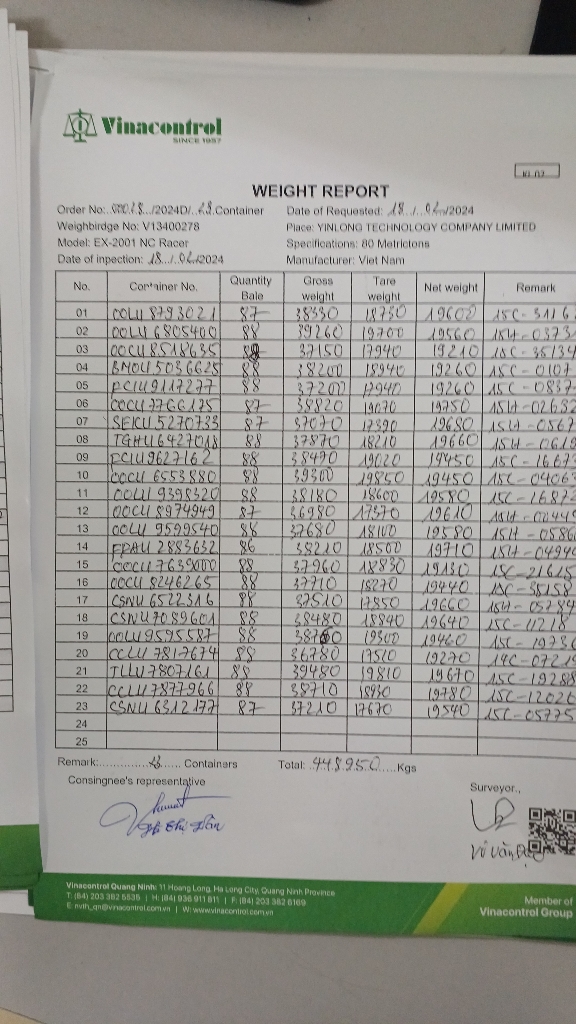 Vinacontrol
SINCE 1957
WEIGHT REPORT
Order No: 00028/2024D/ 23 Container Date of Requested: 18/02/2024
Weighbirdge No: V13400278 Place: YINLONG TECHNOLOGY COMPANY LIMITED
Model: EX-2001 NC Racer Specifications: 80 Metrictons
Date of inpection: 18/02/2024 Manufacturer: Viet Nam
No. Container No. Quantity Bale Gross weight Tare weight Net weight Remark
01 OOLU 8793021 87 38330 18730 19600 15C-3116
02 OOLU 6805400 88 39260 19700 19560 15H-0373
03 OOCU 8518635 37150 17940 19210 15C-35134
04 BMOU 5036625 88 38200 18940 19260 15C-0107
05 PCIU 9117277 88 37200 17940 19260 15C-0837
06 OOCU 7766175 87 38820 19070 19750 15H-02682
07 SEKU 5270733 87 37070 17390 19680 15H-0567
08 TGHU 6427018 88 37870 18210 19660 15H-0619
09 PCIU 9627162 88 38470 19020 19450 15C-16673
10 OOCU 6553880 88 39300 19850 19450 15C-04063
11 OOLU 9398320 88 38180 18600 19580 15C-16872
12 OOCU 8974949 87 36980 17370 19610 15H-00449
13 OOLU 9599540 88 37680 18100 19580 15H-0586
14 FPAU 2883632 86 38210 18500 19710 15H-0494
15 OOCU 7639000 88 37960 18830 19130 15C-21615
16 OOCU 8246265 88 37710 18270 19440 15C-35158
17 CSNU 6522316 88 37510 17850 19660 15H-05284
18 CSNU 7089601 88 38480 18840 19640 15C-11218
19 OOLU 9595587 88 38760 19300 19460 15C-19730
20 CCLU 7817674 88 36780 17510 19270 14C-07219
21 TLLU 7807161 88 39480 19810 19670 15C-19288
22 CCLU 7877966 88 38710 18930 19780 15C-12026
23 CSNU 6312177 87 37210 17670 19540 15C-05775
24
25
Remark: 23 Containers Total: 448950 Kgs
Consingnee's representative
Surveyor
Vinacontrol Quang Ninh: 11 Hoang Long, Ha Long City, Quang Ninh Province
T: (84) 203 382 5535 | H: (84) 936 911 811 | F: (84) 203 382 6169
E: nvth_qn@vinacontrol.com.vn | W: www.vinacontrol.com.vn
Member of
Vinacontrol Group